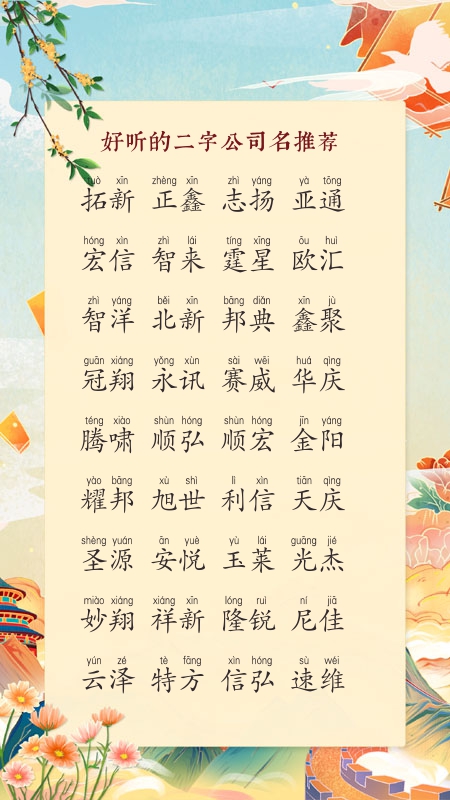 好听的二字公司名推荐
tuò xīn zhèng xīn zhì yáng yà tōng
拓新 正鑫 志扬 亚通
hóng xìn zhì lái tíng xīng ōu huì
宏信 智来 霆星 欧汇
zhì yáng běi xīn bāng diǎn xīn jù
智洋 北新 邦典 鑫聚
guān xiáng yǒng xùn sài wēi huá qìng
冠翔 永讯 赛威 华庆
téng xiào shùn hóng shùn hóng jīn yáng
腾啸 顺弘 顺宏 金阳
yào bāng xù shì lì xìn tiān qìng
耀邦 旭世 利信 天庆
shèng yuán ān yuè yù lái guāng jié
圣源 安悦 玉莱 光杰
miào xiáng xiáng xīn lóng ruì ní jiā
妙翔 祥新 隆锐 尼佳
yún zé tè fāng xìn hóng sù wéi
云泽 特方 信弘 速维